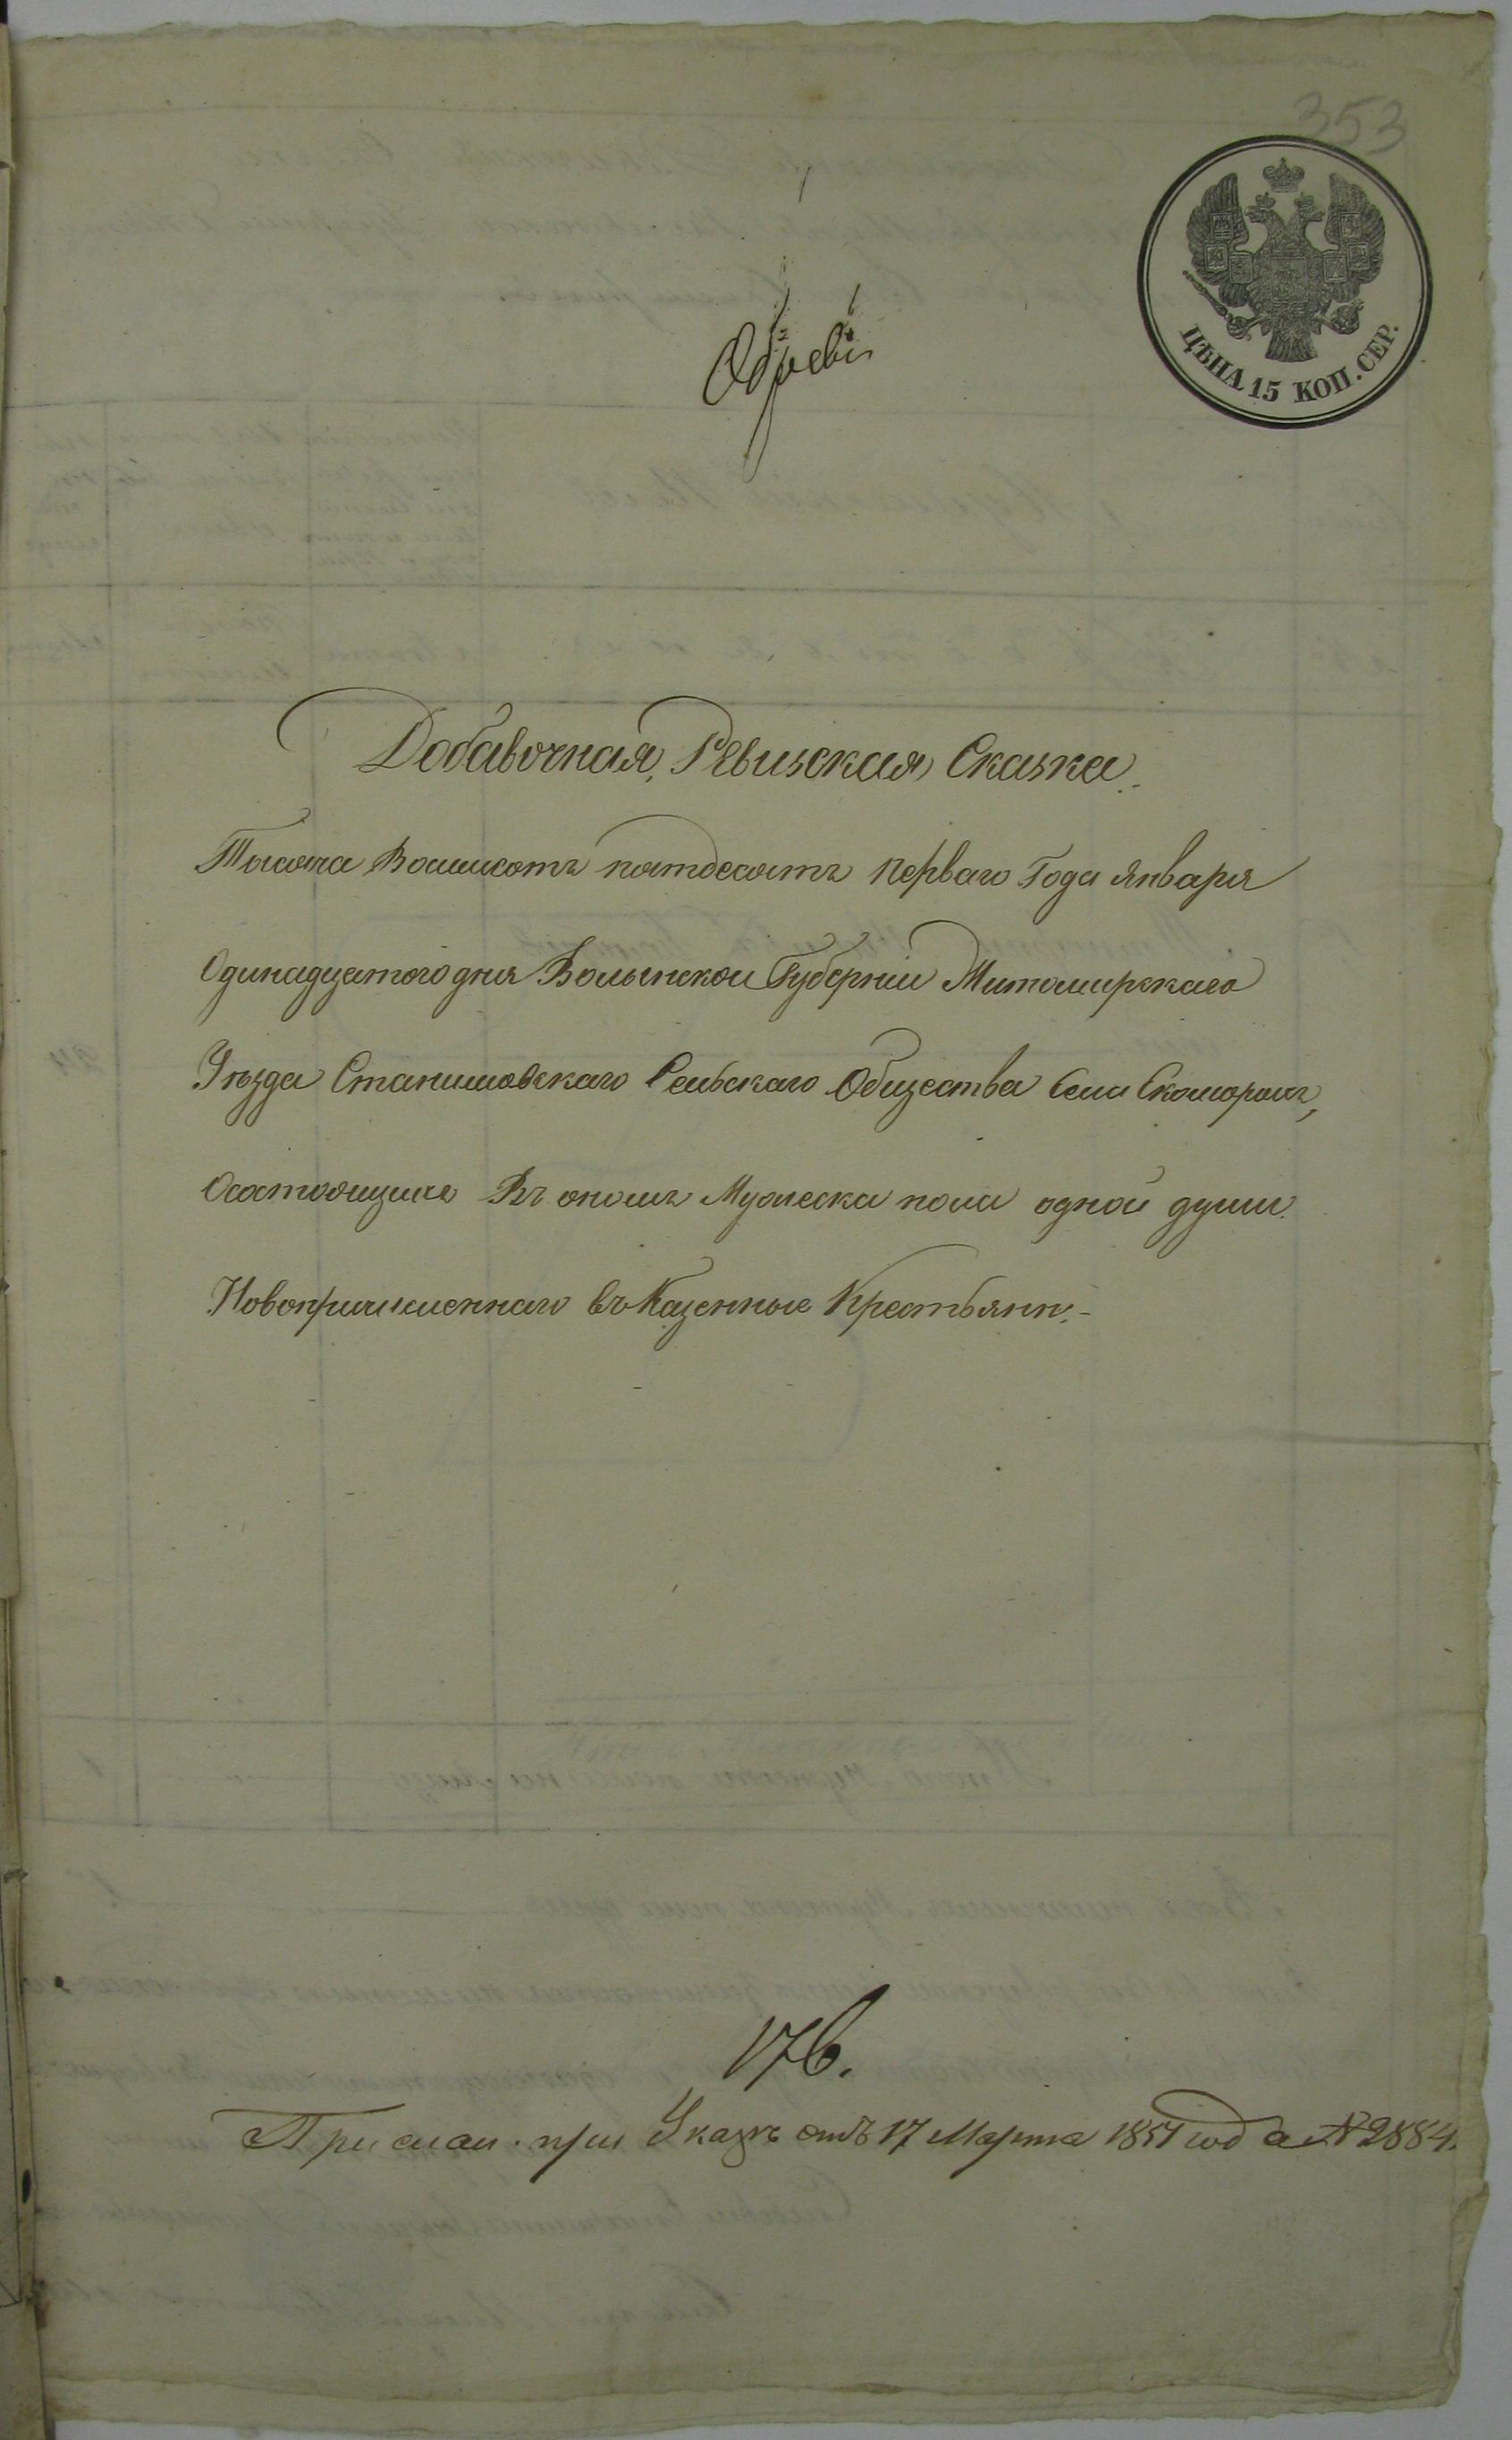 353
ЦѢНА 15 КОП. СЕР.
Добавочная Ревизская Сказка
Тысяча Восимсотъ пятдесятъ перваго Года Января
Одинадцатого дня Волынской Губерніи Житомирскаго
Уѣзда Станишовскаго Сельскаго Общества Села Скоморохъ,
Осостоящиме Въ ономъ Мужеска пола одной души
Новопричисленнаго въ Казенные Крестьяны.
176.
Прислан. при Указѣ отъ 17 Марта 1851 года № 2884.